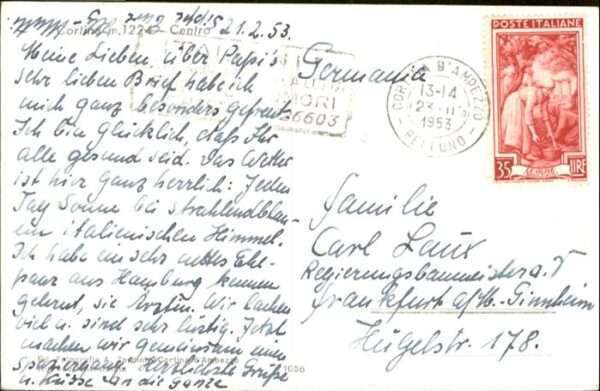 21.2.53.
Cortina m. 1224 - Centro
Meine Lieben, über Papi's
sehr lieben Brief habe ich
mich ganz besonders gefreut.
Ich bin glücklich, daß Ihr
alle gesund seid. Das Wetter
ist hier ganz herrlich: Jeden
Tag Sonne bei strahlendblau-
em italienischen Himmel.
Ich habe ein sehr nettes Ehe-
paar aus Hamburg kennen
gelernt, sie Ärztin. Wir lachen
viel u. sind sehr lustig. Jetzt
machen wir gemeinsam einen
Spaziergang. Herzlichste Grüße
u. Küsse an die ganze
Cortina d'Ampezzo
1056
36603
CORTINA D'AMPEZZO
13-14
23.II
1953
BELLUNO
POSTE ITALIANE
35 LIRE
Germania
Familie
Carl Laux
Regierungsbaumeister a. D
Frankfurt a/M.-Ginnheim
Hügelstr. 178.